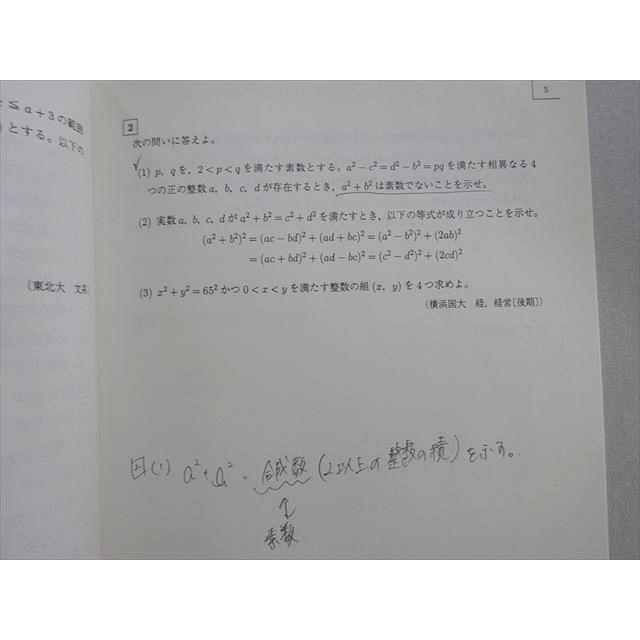 ≦a+3の範囲
とする。以下の
(東北大 文系)
5
2
次の問いに答えよ。
(1) p, qを, 2<p<qを満たす素数とする。a²−c²=d²−b²=pqを満たす相異なる4
つの正の整数a, b, c, dが存在するとき, a²+b²は素数でないことを示せ。
(2) 実数a, b, c, dがa²+b²=c²+d²を満たすとき, 以下の等式が成り立つことを示せ。
(a²+b²)²=(ac−bd)²+(ad+bc)²=(a²−b²)²+(2ab)²
=(ac+bd)²+(ad−bc)²=(c²−d²)²+(2cd)²
(3) x²+y²=65²かつ0<x<yを満たす整数の組(x, y)を4つ求めよ。
(横浜国大 経, 経営〔後期〕)
(1) a²+ 合成数(2以上の整数の積)を示す。
素数